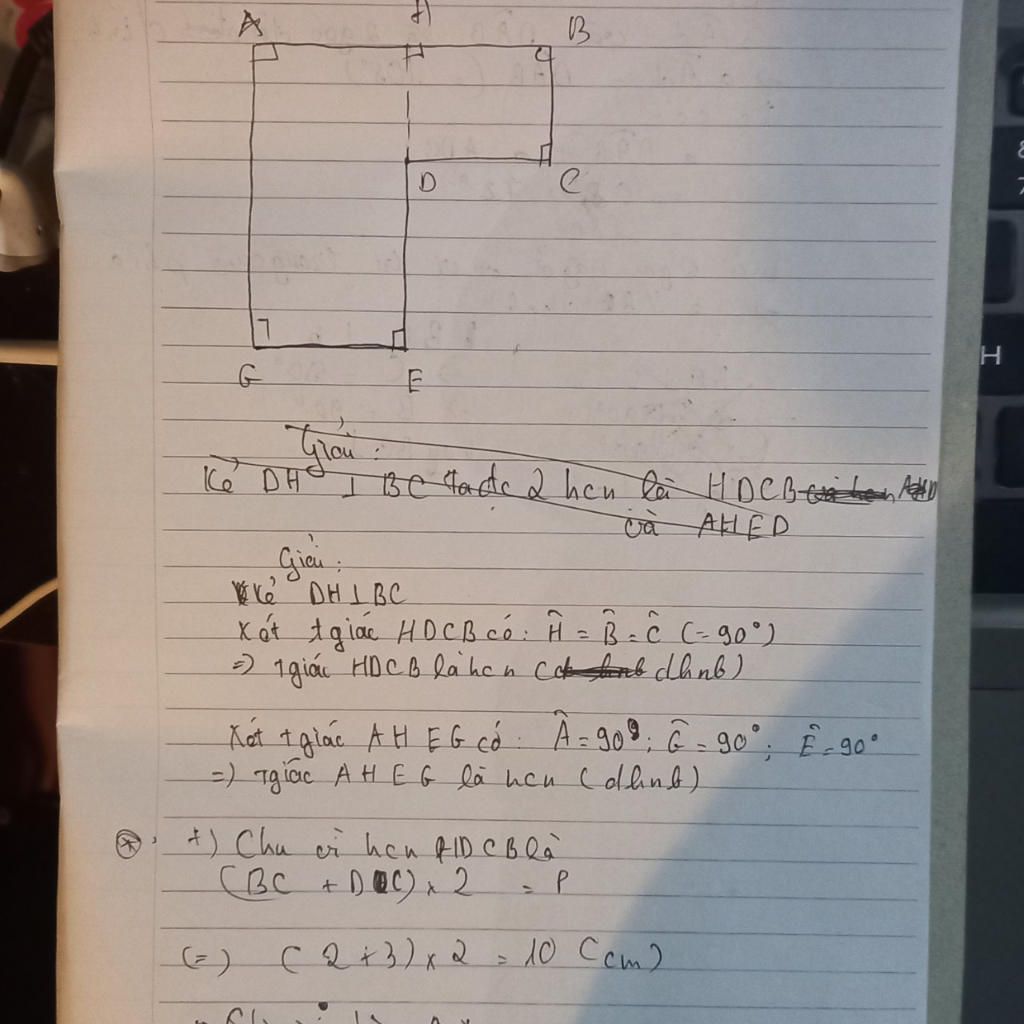 A H B
D C
G E
Giải:
Kẻ DH ⊥ BC ta đc 2 hcn là HDCB
và AHED
Giải:
Kẻ DH⊥BC
Xét tgiác HDCB có: Ĥ = B̂ = Ĉ (=90°)
=> Tgiác HDCB là hcn (dhnb)
Xét tgiác AHEG có: Â=90°; Ĝ=90°; Ê=90°
=> Tgiác AHEG là hcn (dhnb)
+) Chu vi hcn HDCB là
(BC + DC) x 2 = P
(=) (2+3) x 2 = 10 (cm)
H